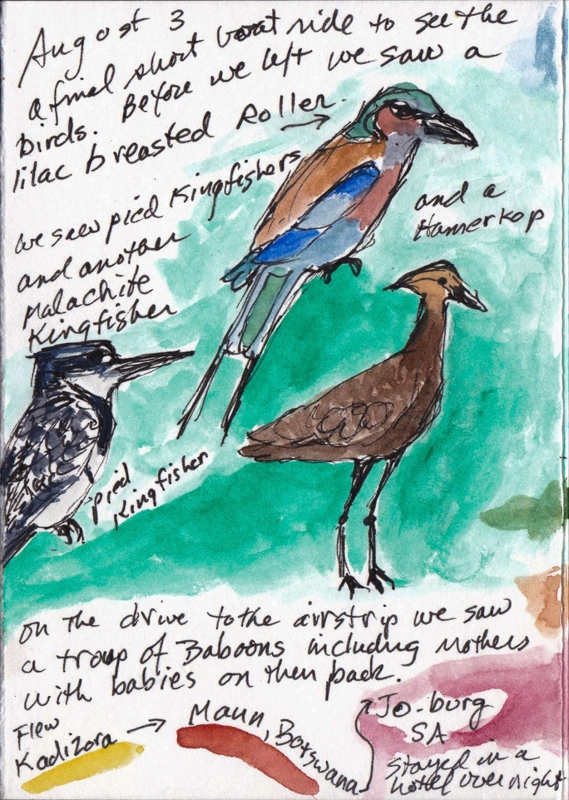 August 3
a final short boat ride to see the
birds. Before we left we saw a
lilac breasted Roller. →
we saw pied Kingfishers
and another
Malachite
Kingfisher
and a
Hamerkop
pied
Kingfisher
on the drive to the airstrip we saw
a troop of Baboons including mothers
with babies on their back.
Flew
Kadizora → Maun, Botswana
Jo-burg
SA
Stayed in a
hotel overnight